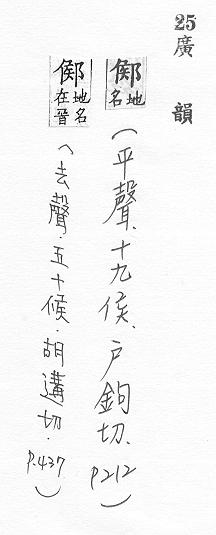 25 廣韻
鄇 地名 (平聲、十九侯、戶鉤切、P.212)
鄇 地名在晉 (去聲．五十候．胡遘切．P.437)